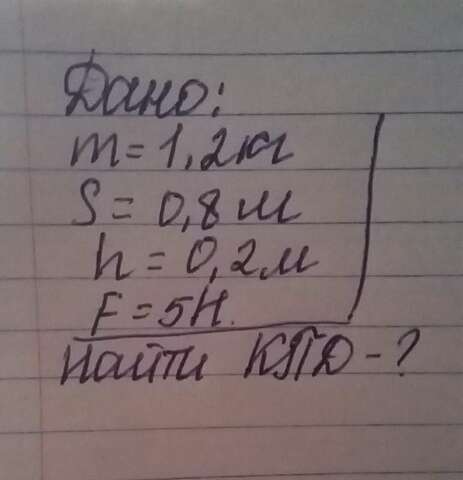 Дано:
m = 1,2 кг
S = 0,8 м
h = 0,2 м
F = 5Н.
Найти КПД - ?